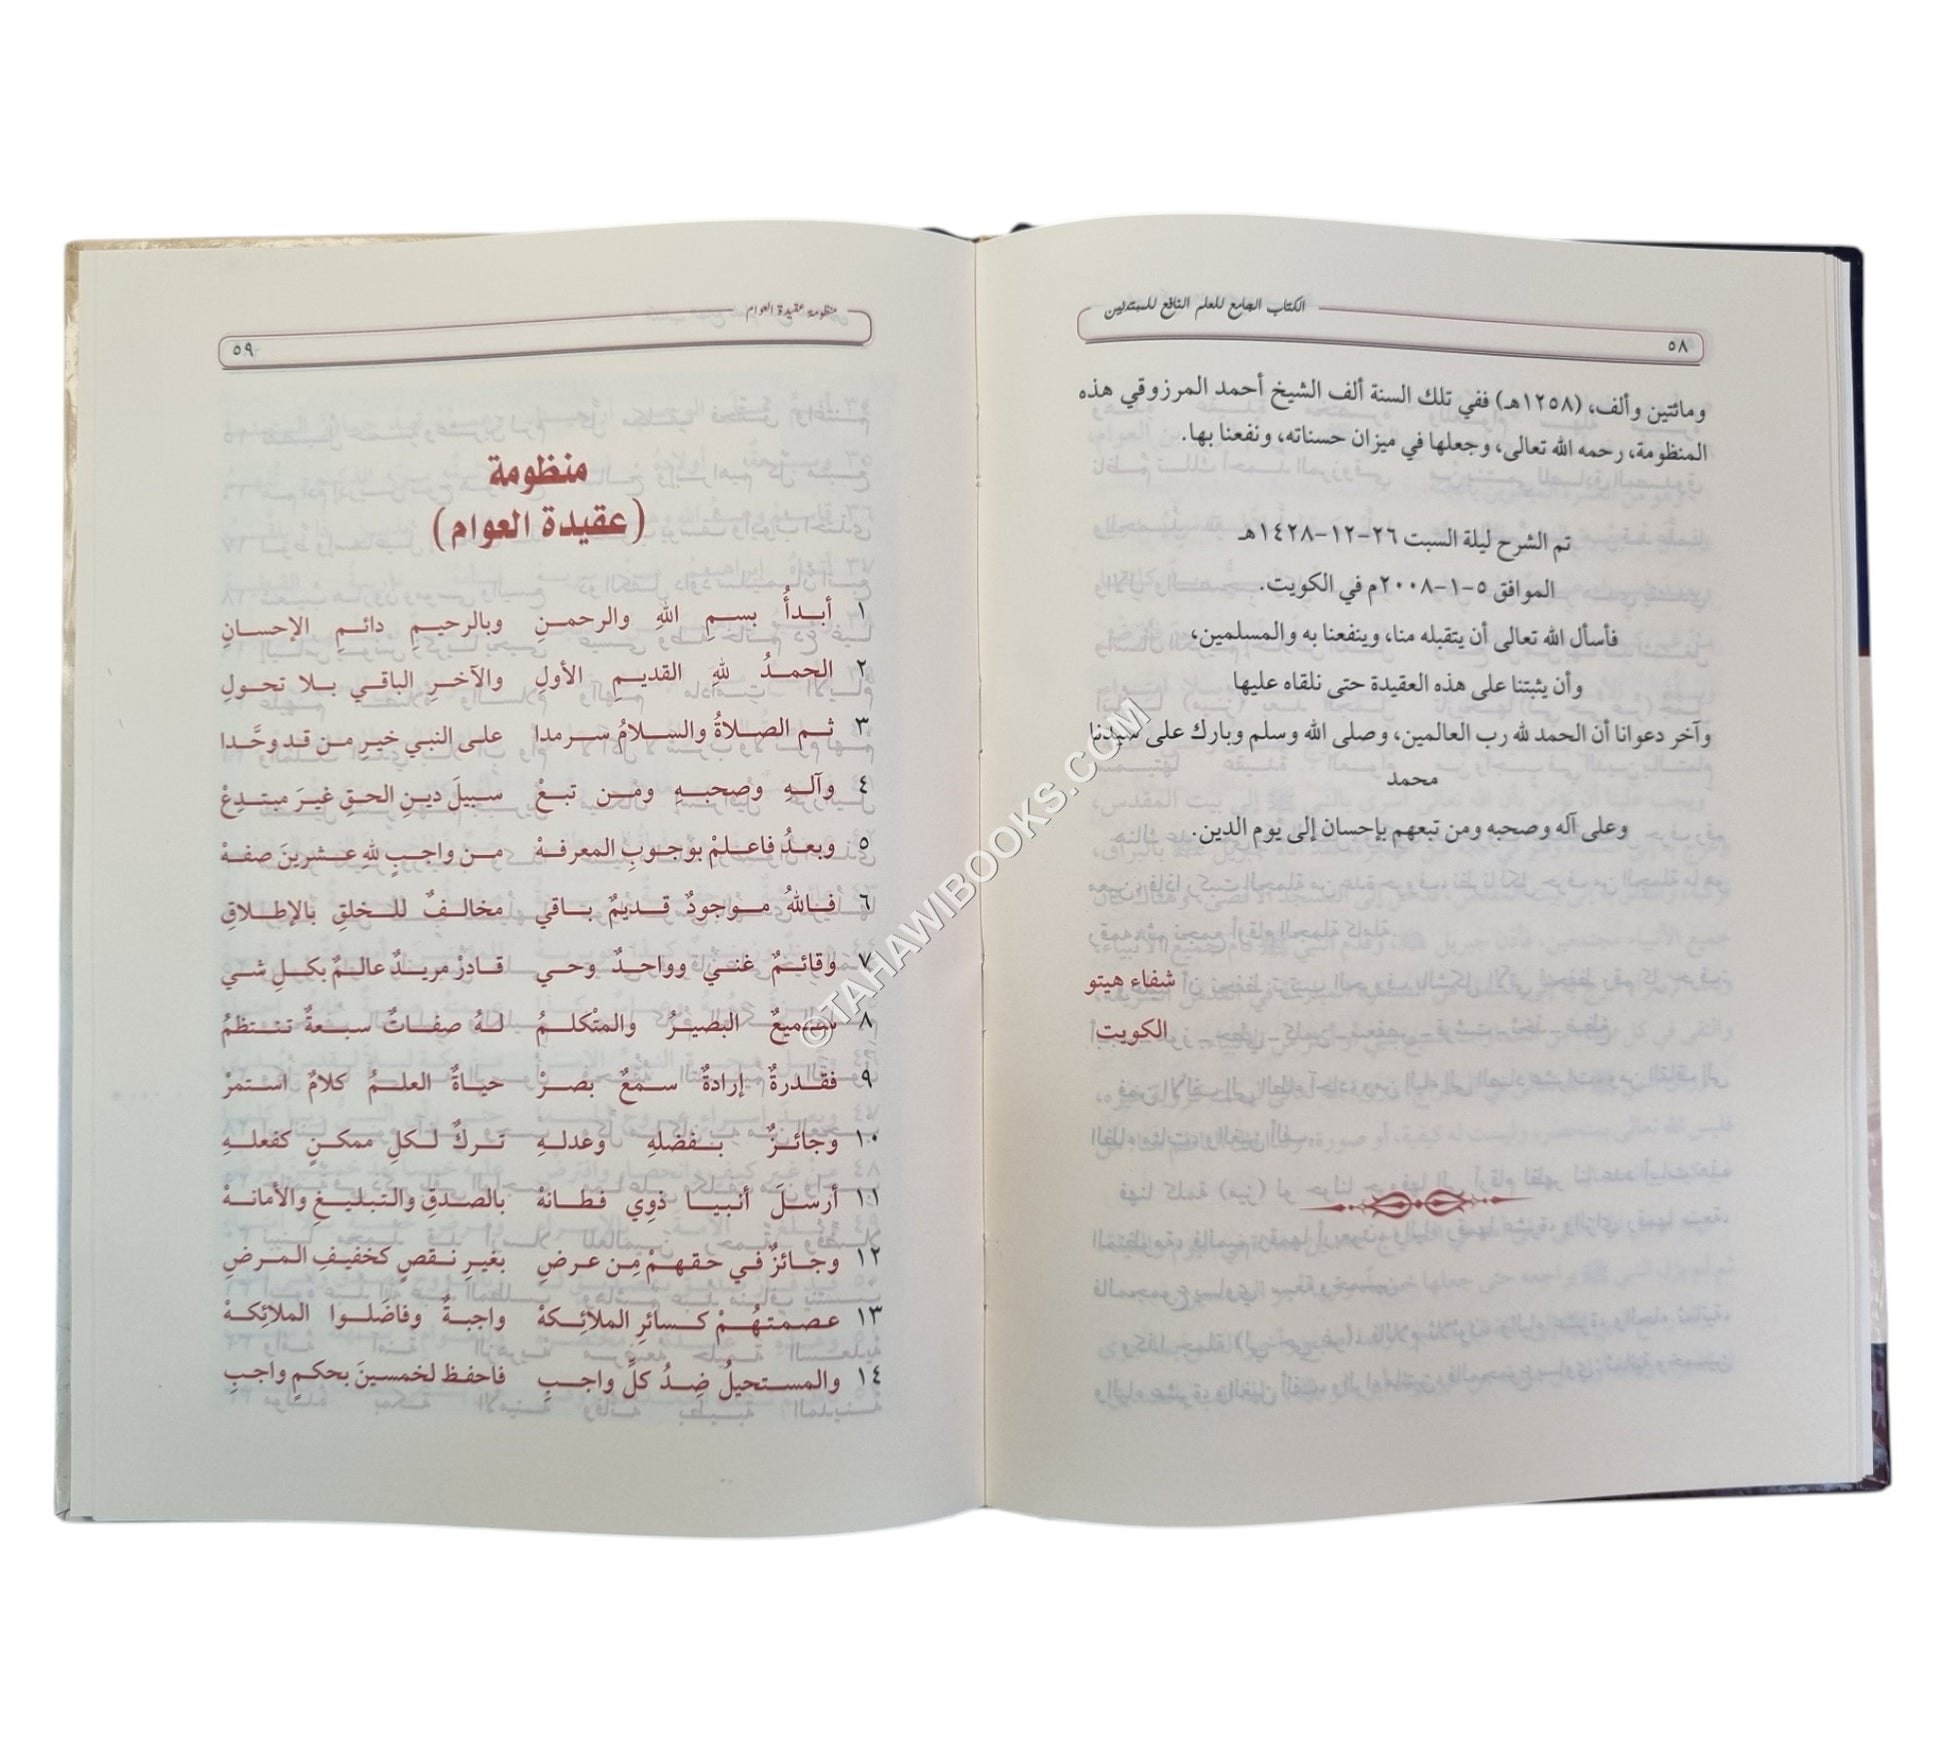 الكتاب الجامع للعلم النافع للمبتدئين
٥٨
ومائتين وألف، (١٢٥٨هـ) ففي تلك السنة ألف الشيخ أحمد المرزوقي هذه
المنظومة، رحمه الله تعالى، وجعلها في ميزان حسناته، ونفعنا بها.
تم الشرح ليلة السبت ٢٦-١٢-١٤٢٨هـ
الموافق ٥-١-٢٠٠٨م في الكويت.
فأسأل الله تعالى أن يتقبله منا، وينفعنا به والمسلمين،
وأن يثبتنا على هذه العقيدة حتى نلقاه عليها
وآخر دعوانا أن الحمد لله رب العالمين، وصلى الله وسلم وبارك على سيدنا
محمد
وعلى آله وصحبه ومن تبعهم بإحسان إلى يوم الدين.
شفاء هيتو
الكويت
منظومة عقيدة العوام
٥٩
منظومة
(عقيدة العوام)
١ أبدأُ بسمِ اللهِ والرحمنِ وبالرحيمِ دائمِ الإحسانِ
٢ الحمدُ للهِ القديمِ الأولِ والآخرِ الباقي بلا تحولِ
٣ ثم الصلاةُ والسلامُ سرمدا على النبي خيرِ من قد وحَّدا
٤ وآلهِ وصحبهِ ومن تبعْ سبيلَ دينِ الحقِ غيرَ مبتدِعْ
٥ وبعدُ فاعلمْ بوجوبِ المعرفهْ من واجبٍ للهِ عشرينَ صفهْ
٦ فاللهُ موجودٌ قديمٌ باقي مخالفٌ للخلقِ بالإطلاقِ
٧ وقائمٌ غنيْ وواحدٌ وحي قادرْ مريدٌ عالمٌ بكلِ شي
٨ سميعٌ البصيرُ والمتْكلمُ لهُ صفاتٌ سبعةٌ تنتظمُ
٩ فقدرةٌ إرادةٌ سمعٌ بصرْ حياةٌ العلمُ كلامٌ استمرْ
١٠ وجائزٌ بفضلهِ وعدلهِ تركٌ لكلِ ممكنٍ كفعلهِ
١١ أرسلَ أنبيا ذوِي فطانهْ بالصدقِ والتبليغِ والأمانهْ
١٢ وجائزٌ في حقهمْ مِن عرضِ بغيرِ نقصٍ كخفيفِ المرضِ
١٣ عصمتهُمْ كسائرِ الملائِكهْ واجبةٌ وفاضَلوا الملائِكهْ
١٤ والمستحيلُ ضِدُ كلِّ واجبِ فاحفظ لخمسينَ بحكمٍ واجبِ
©TAHAWIBOOKS.COM